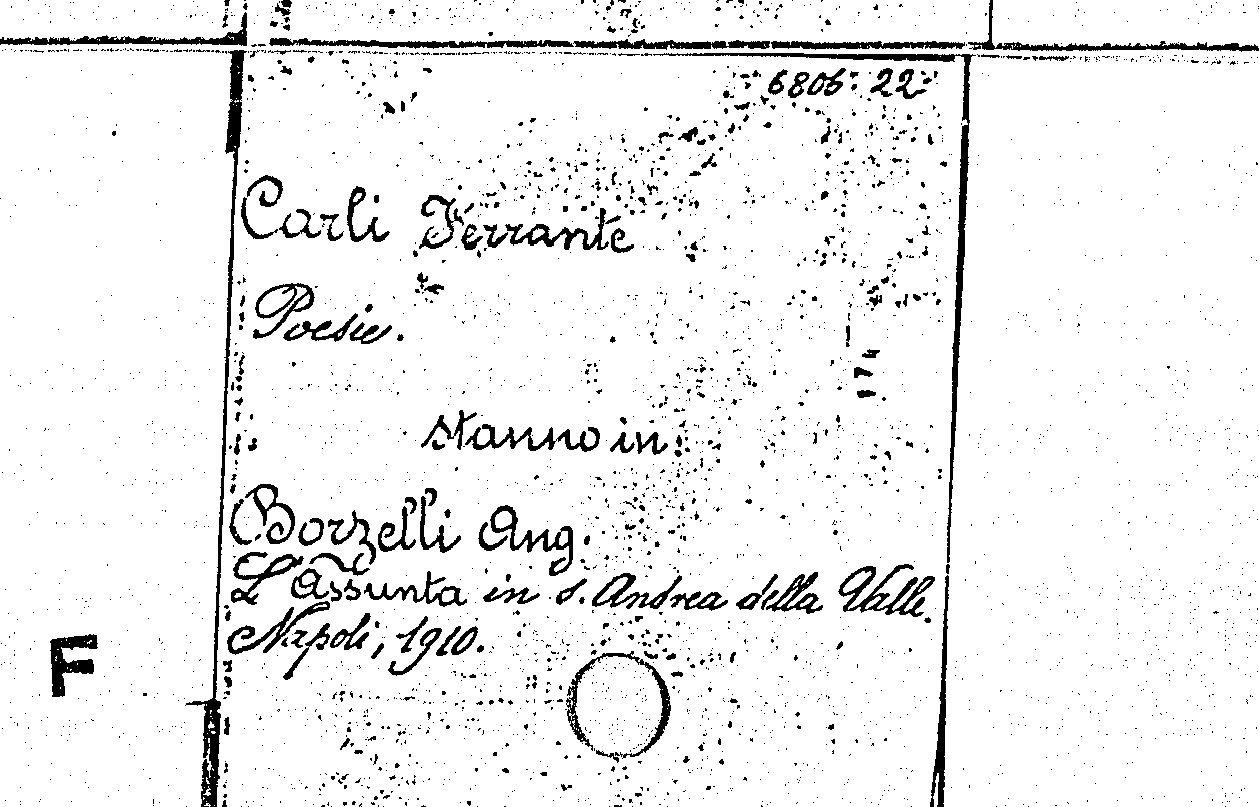 6805.22
Carli Ferrante
Poesie.
stanno in:
Borzelli Ang.
L'Assunta in S. Andrea della Valle.
Napoli, 1910.
F